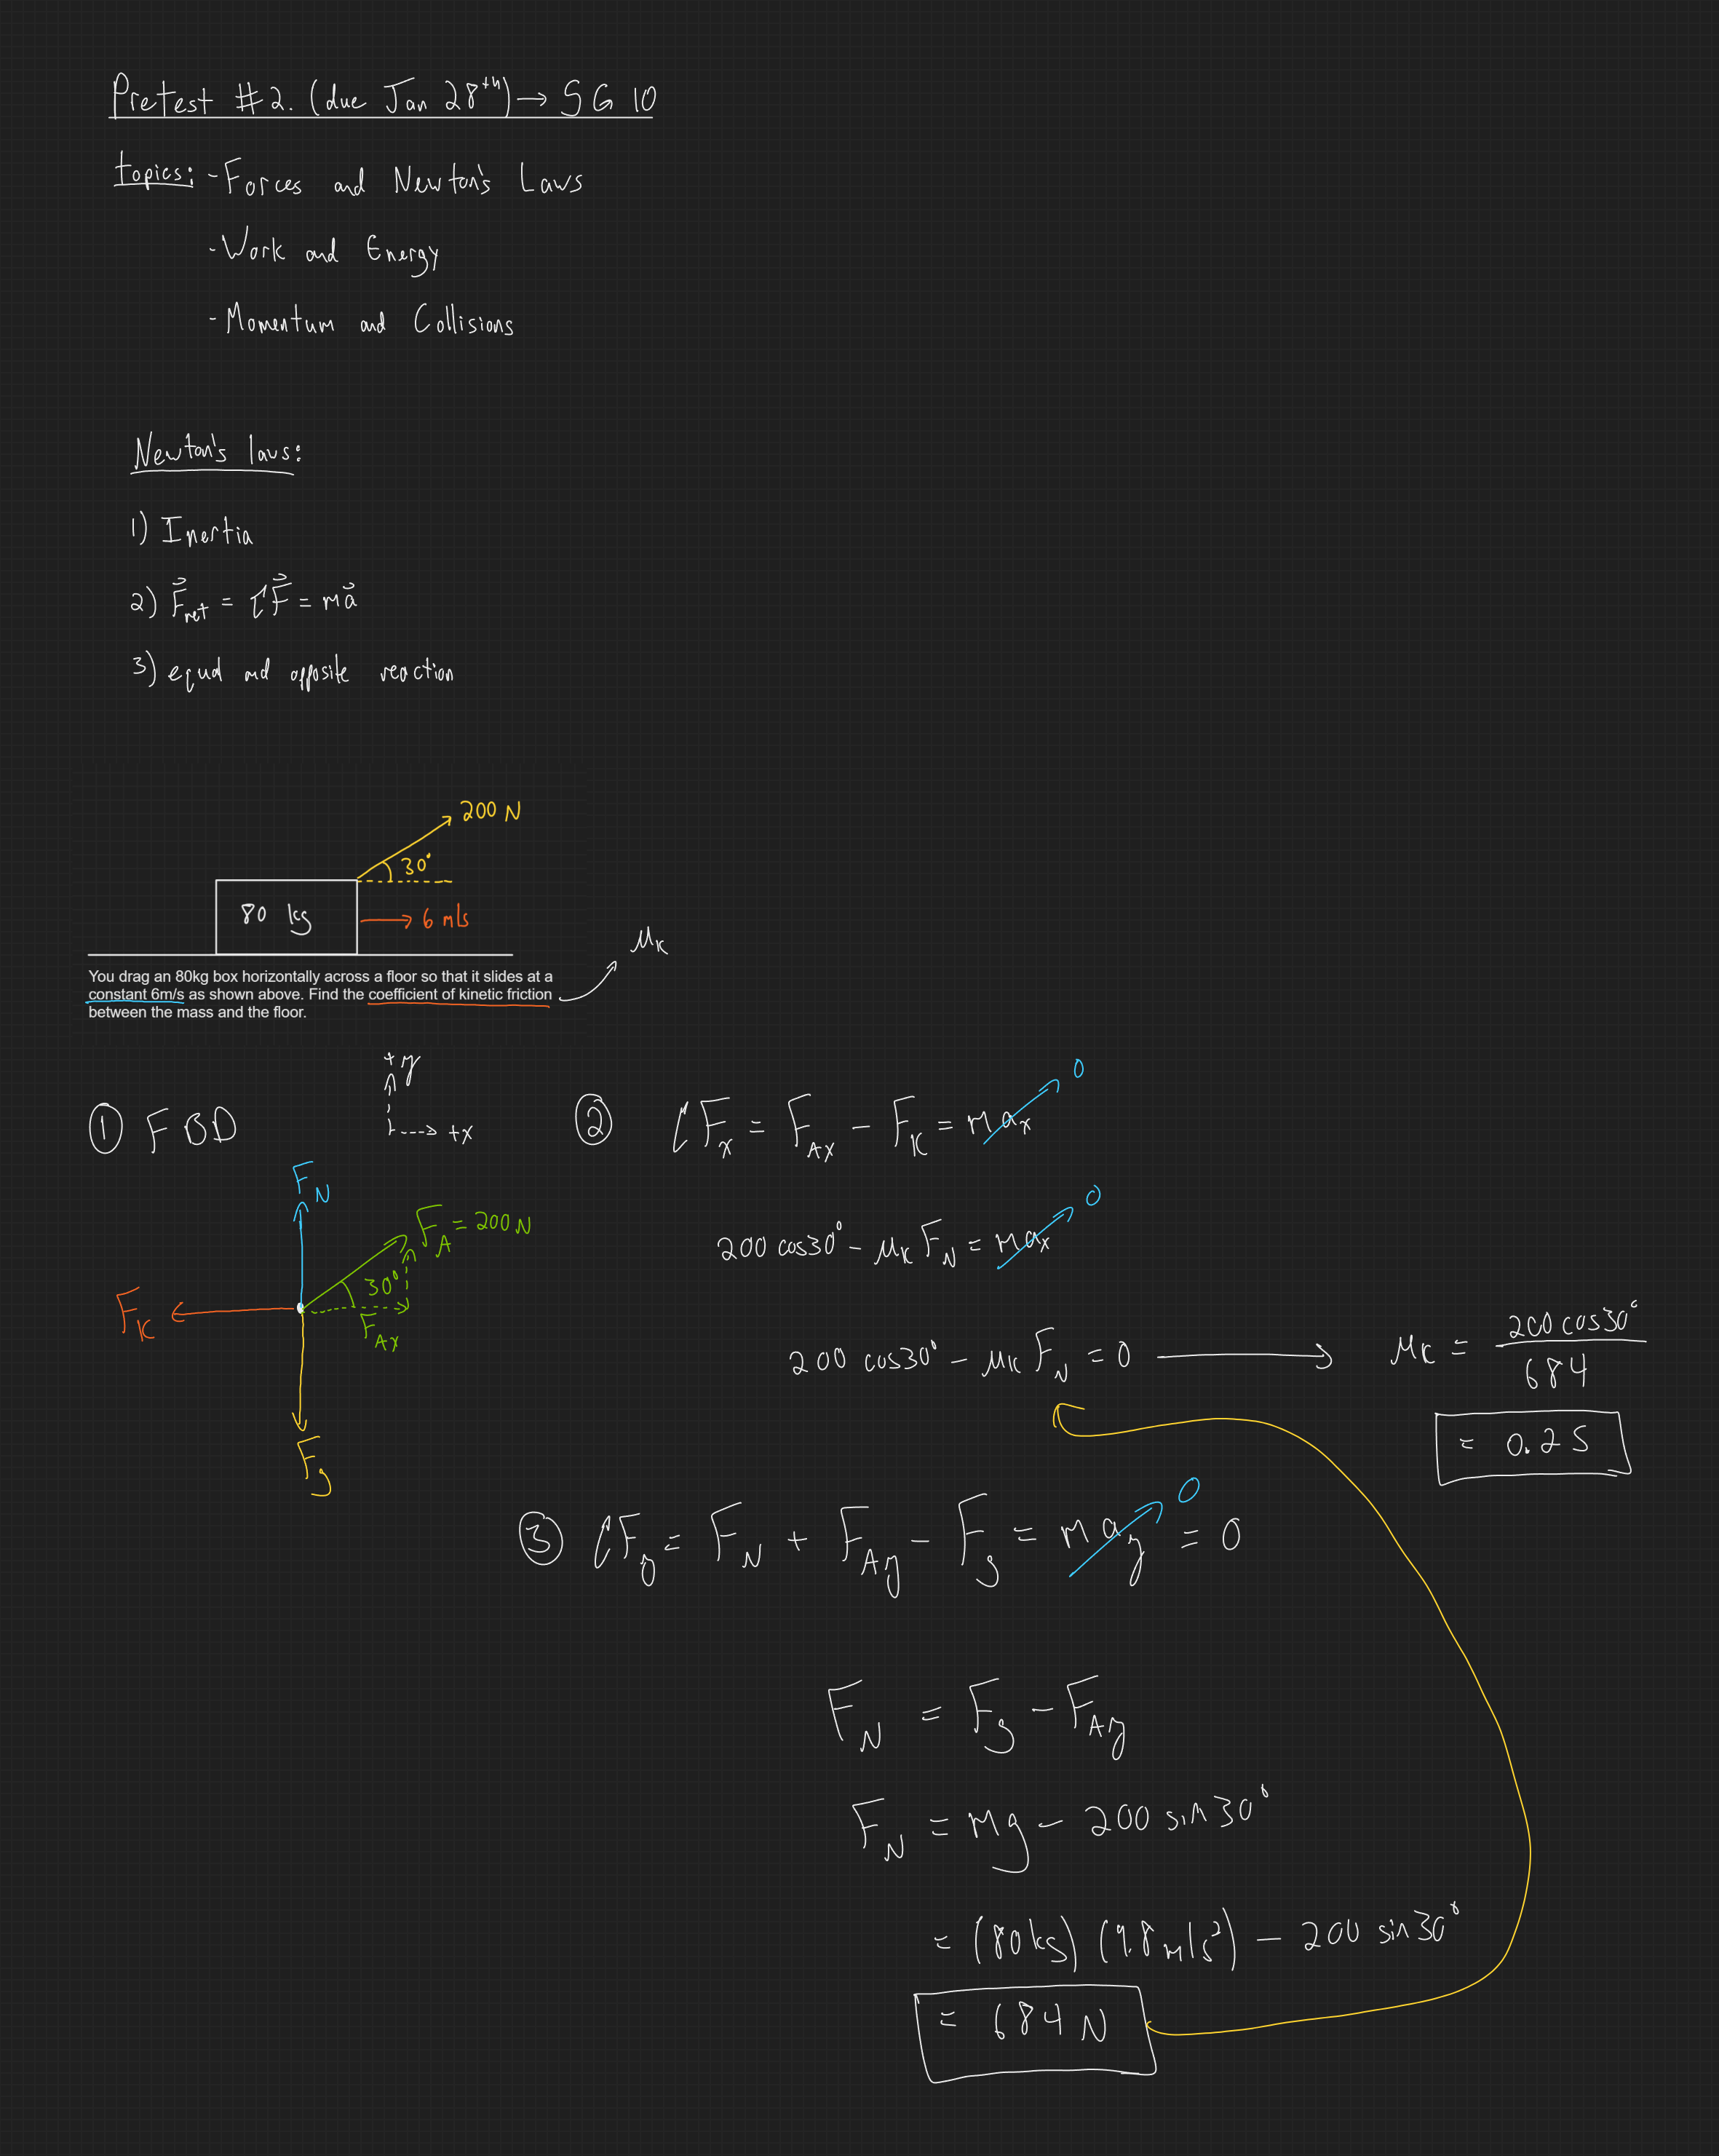 Pretest #2. (due Jan 28th) → SG 10
topics: - Forces and Newton's Laws
- Work and Energy
- Momentum and Collisions
Newton's laws:
1) Inertia
2) F⃗net = ΣF⃗ = ma⃗
3) equal and opposite reaction
200 N
30°
80 kg
→ 6 m/s
μk
You drag an 80kg box horizontally across a floor so that it slides at a
constant 6m/s as shown above. Find the coefficient of kinetic friction
between the mass and the floor.
① FBD
+y
+x
FN
FA = 200 N
30°
FAx
Fk
Fg
② ΣFx = FAx − Fk = max 0
200 cos30° − μk FN = max 0
200 cos30° − μk FN = 0 → μk = 200 cos30° / 684
= 0.25
③ ΣFy = FN + FAy − Fg = may 0 = 0
FN = Fg − FAy
FN = mg − 200 sin 30°
= (80 kg) (9.8 m/s²) − 200 sin 30°
= 684 N